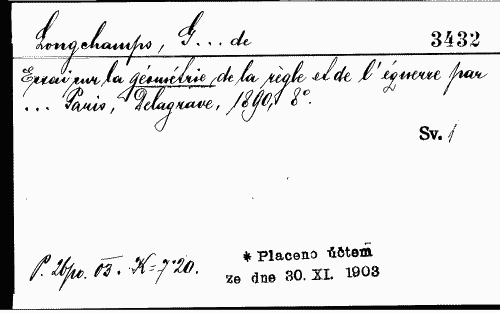 Longchamps, G... de 3432
Essai sur la géométrie de la règle et de l'équerre par
... Paris, Delagrave, 1890, 8°.
Sv. 1
P. 26/10. 03. K=7·20.
* Placeno účtem
ze dne 30. XI. 1903